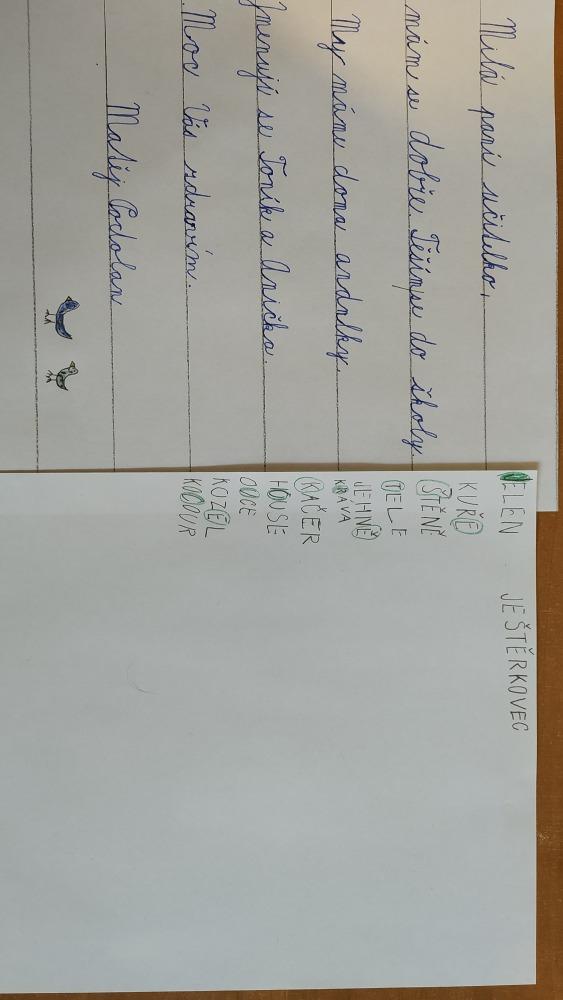 Milá paní učitelko,
mám se dobře. Těším se do školy.
My máme doma andulky.
Jmenují se Toník a Anička.
Moc Vás zdravím.
Matěj Podolan
JELEN
JEŠTĚRKOVEC
KUŘE
ŠTĚNĚ
TELE
JEHNĚ
KRÁVA
KAČER
HOUSE
OVCE
KOZEL
KOCOUR